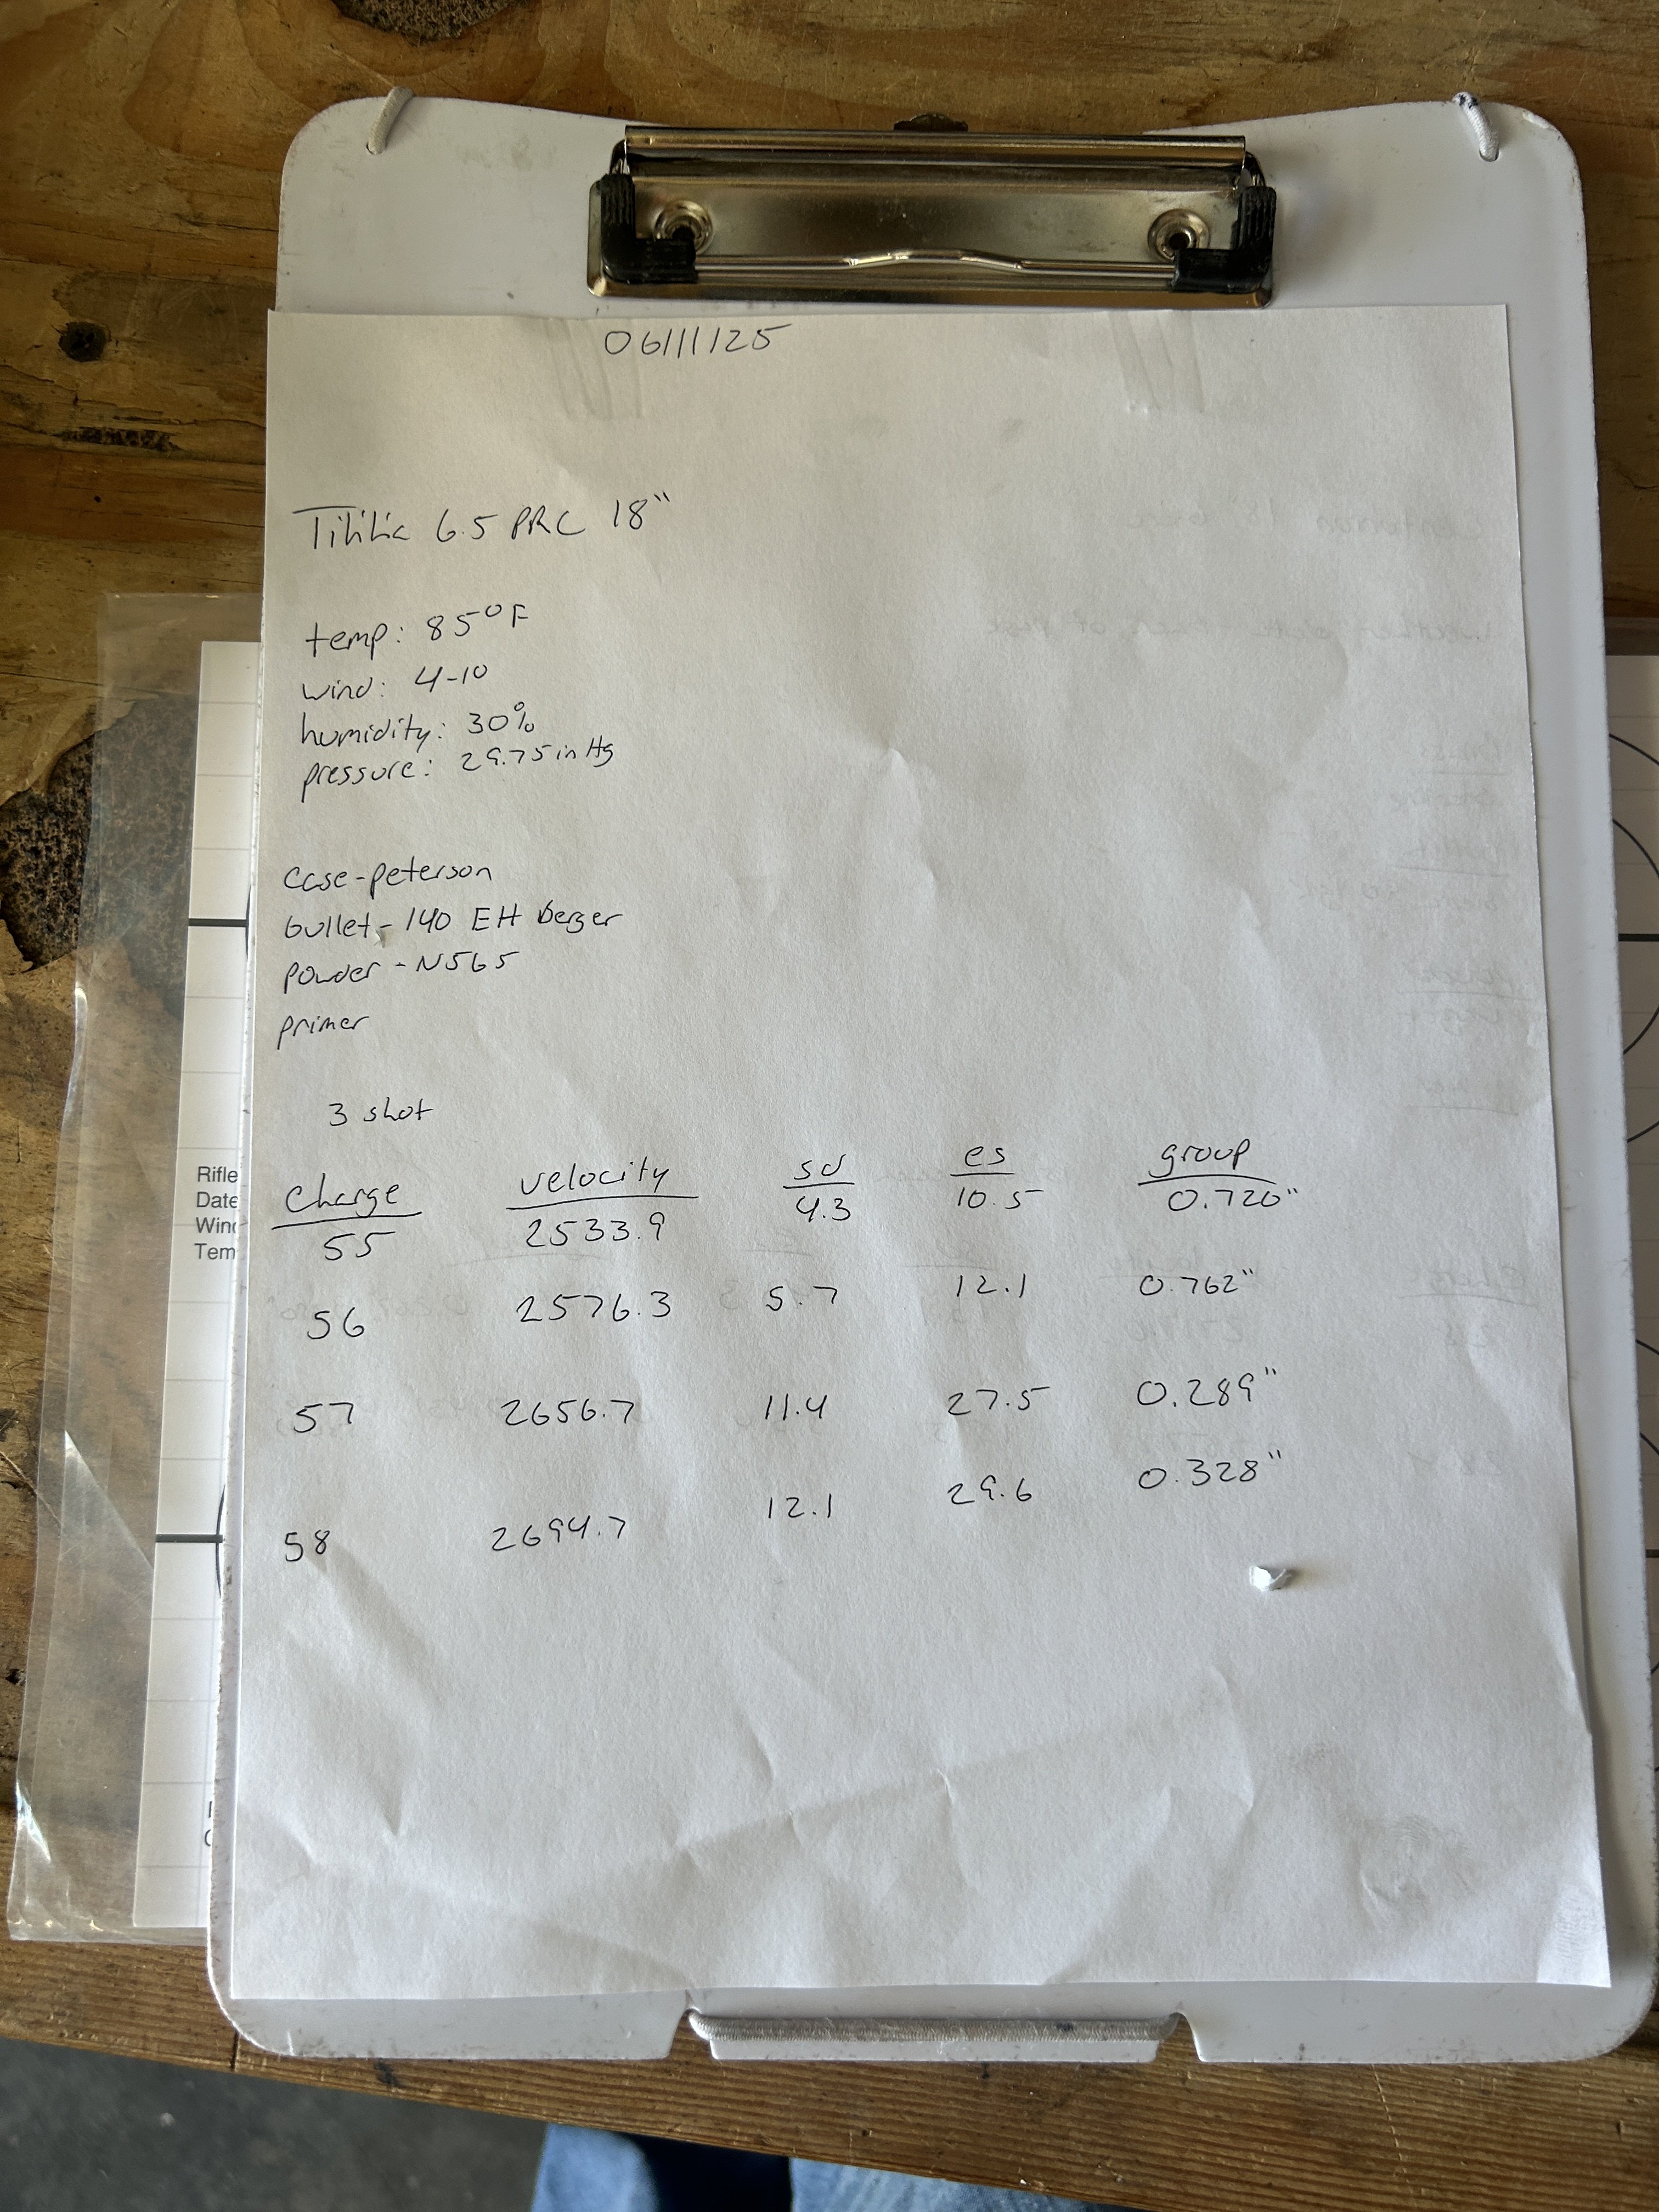 06/11/25
Tikka 6.5 PRC 18"
temp: 85°F
wind: 4-10
humidity: 30%
pressure: 29.75 in Hg
case - peterson
bullet - 140 EH berger
powder - N565
primer
3 shot
charge velocity sd es group
55 2533.9 4.3 10.5 0.720"
56 2576.3 5.7 12.1 0.762"
57 2656.7 11.4 27.5 0.289"
58 2694.7 12.1 29.6 0.328"
Rifle
Date
Wind
Tem